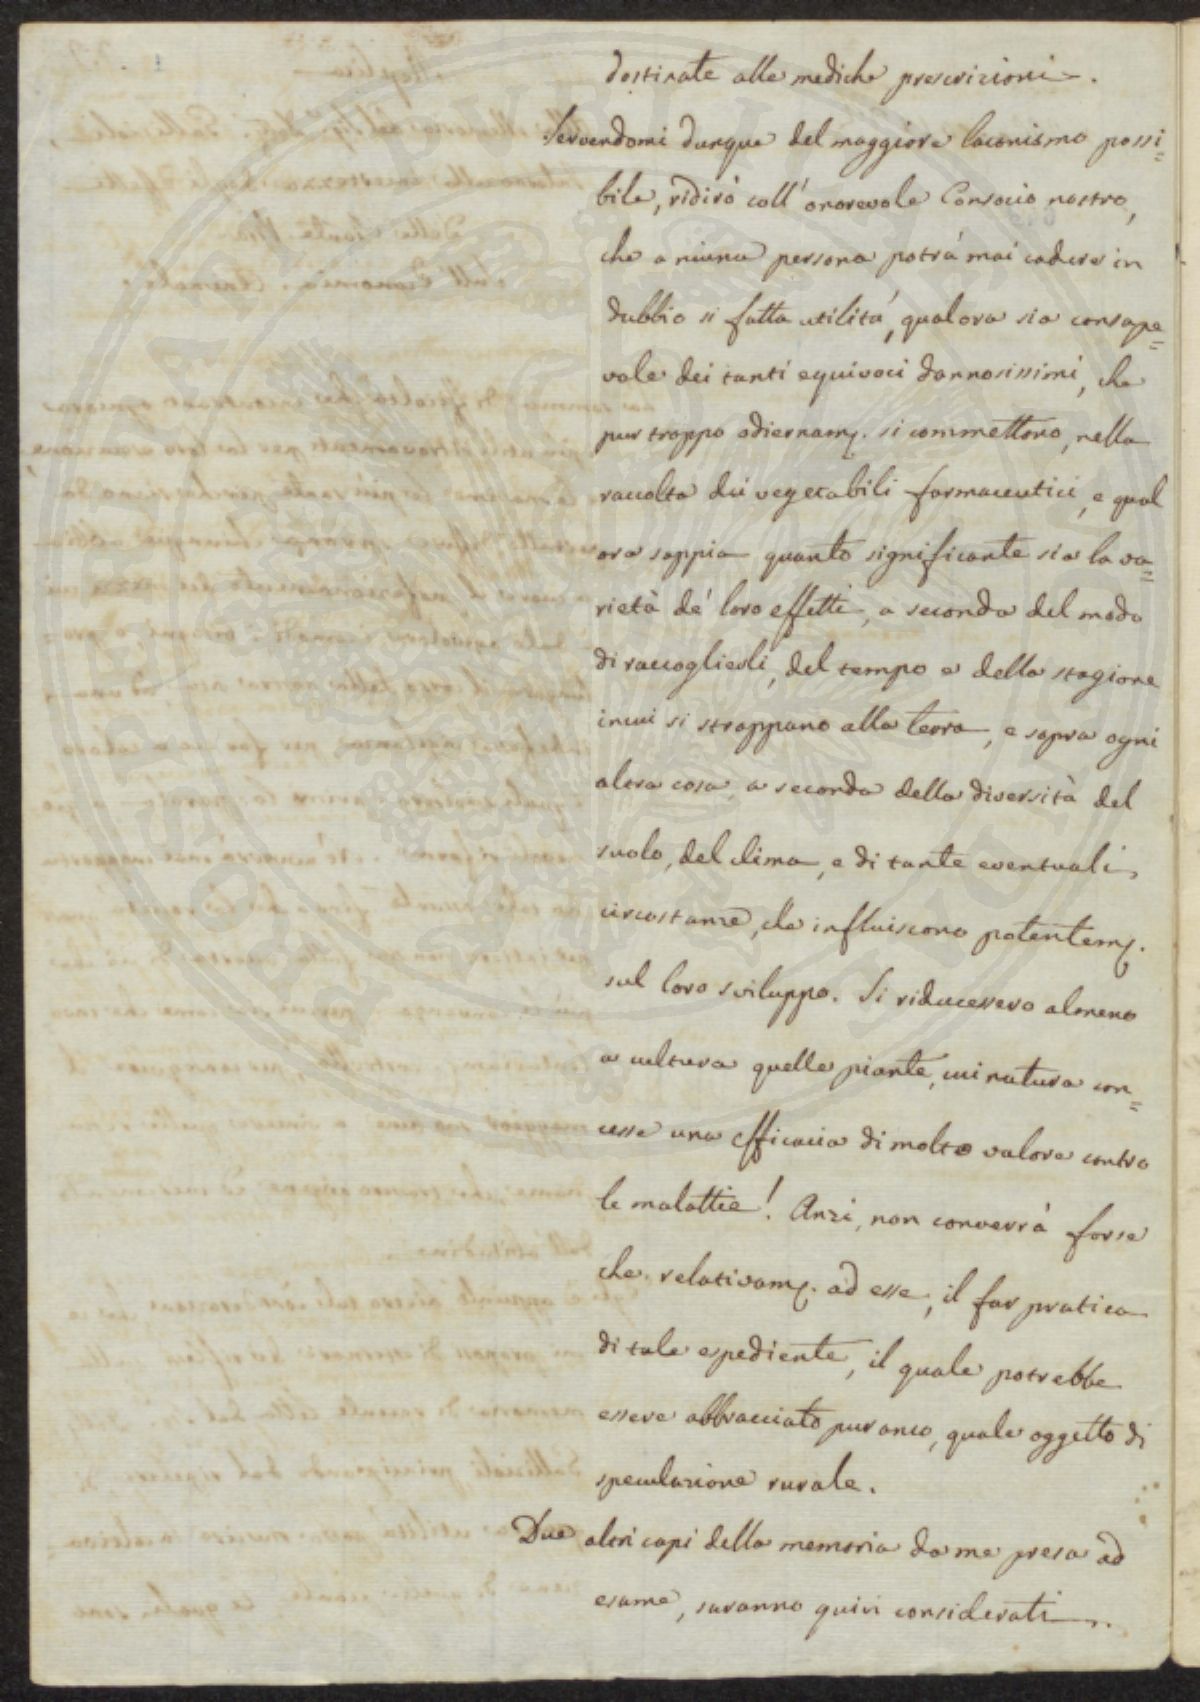 destinate alle mediche prescrizioni.
Servendomi dunque del maggiore laconismo possi=
bile, ridirò coll'onorevole Consocio nostro,
che a niuna persona potrà mai cadere in
dubbio si fatta utilità, qualora sia consape=
vole dei tanti equivoci dannosissimi, che
pur troppo odiernam. si commettono, nella
raccolta dei vegetabili farmaceutici, e qual
ora sappia quanto significante sia la va=
rietà de' loro effetti, a seconda del modo
di raccoglierli, del tempo e della stagione
in cui si strappano alla terra, e sopra ogni
altra cosa a seconda della diversità del
suolo, del clima, e di tante eventuali
circostanze, che influiscono potentem.
sul loro sviluppo. Si riducessero almeno
a cultura quelle piante, cui natura con=
cesse una efficacia di molto valore contro
le malattie! Anzi, non converrà forse
che relativam. ad esse, il far pratica
di tale espediente, il quale potrebbe
essere abbracciato pur anco, quale oggetto di
speculazione rurale.
Due altri capi della memoria da me presa ad
esame, saranno quivi considerati